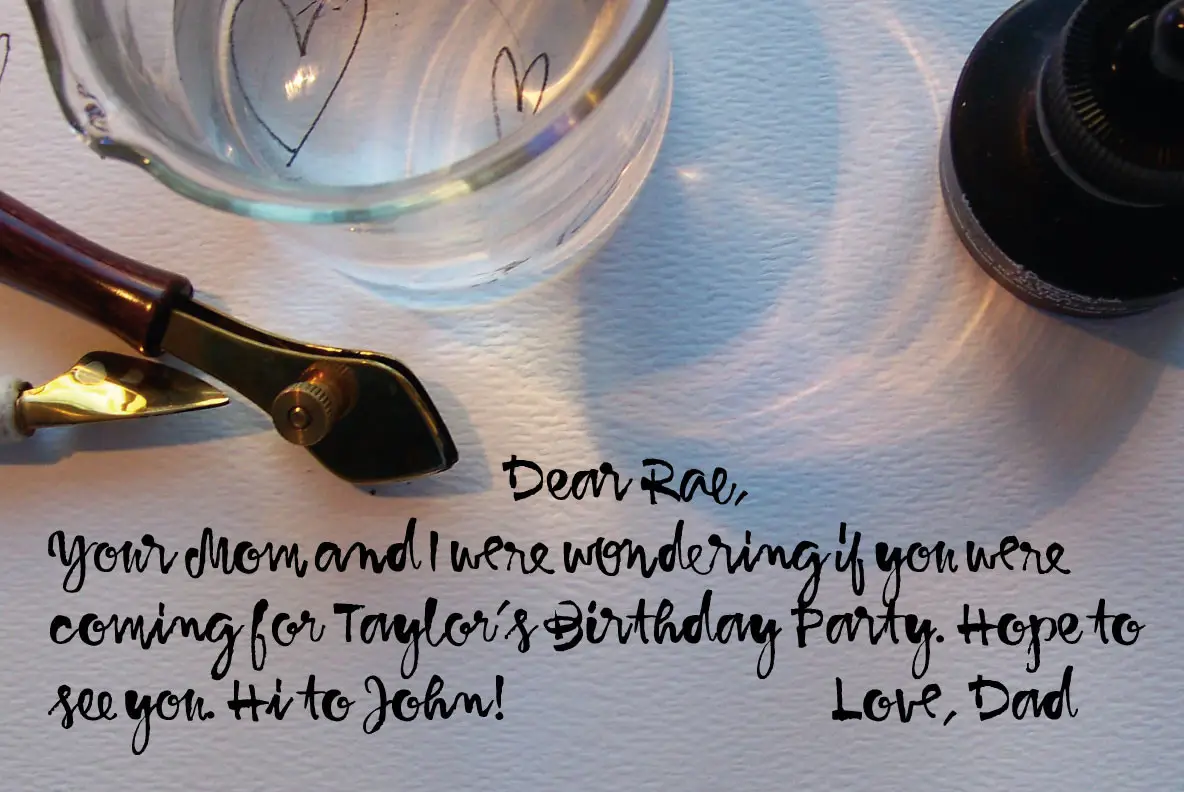 Dear Rae,
Your Mom and I were wondering if you were
coming for Taylor's Birthday Party. Hope to
see you. Hi to John! Love, Dad